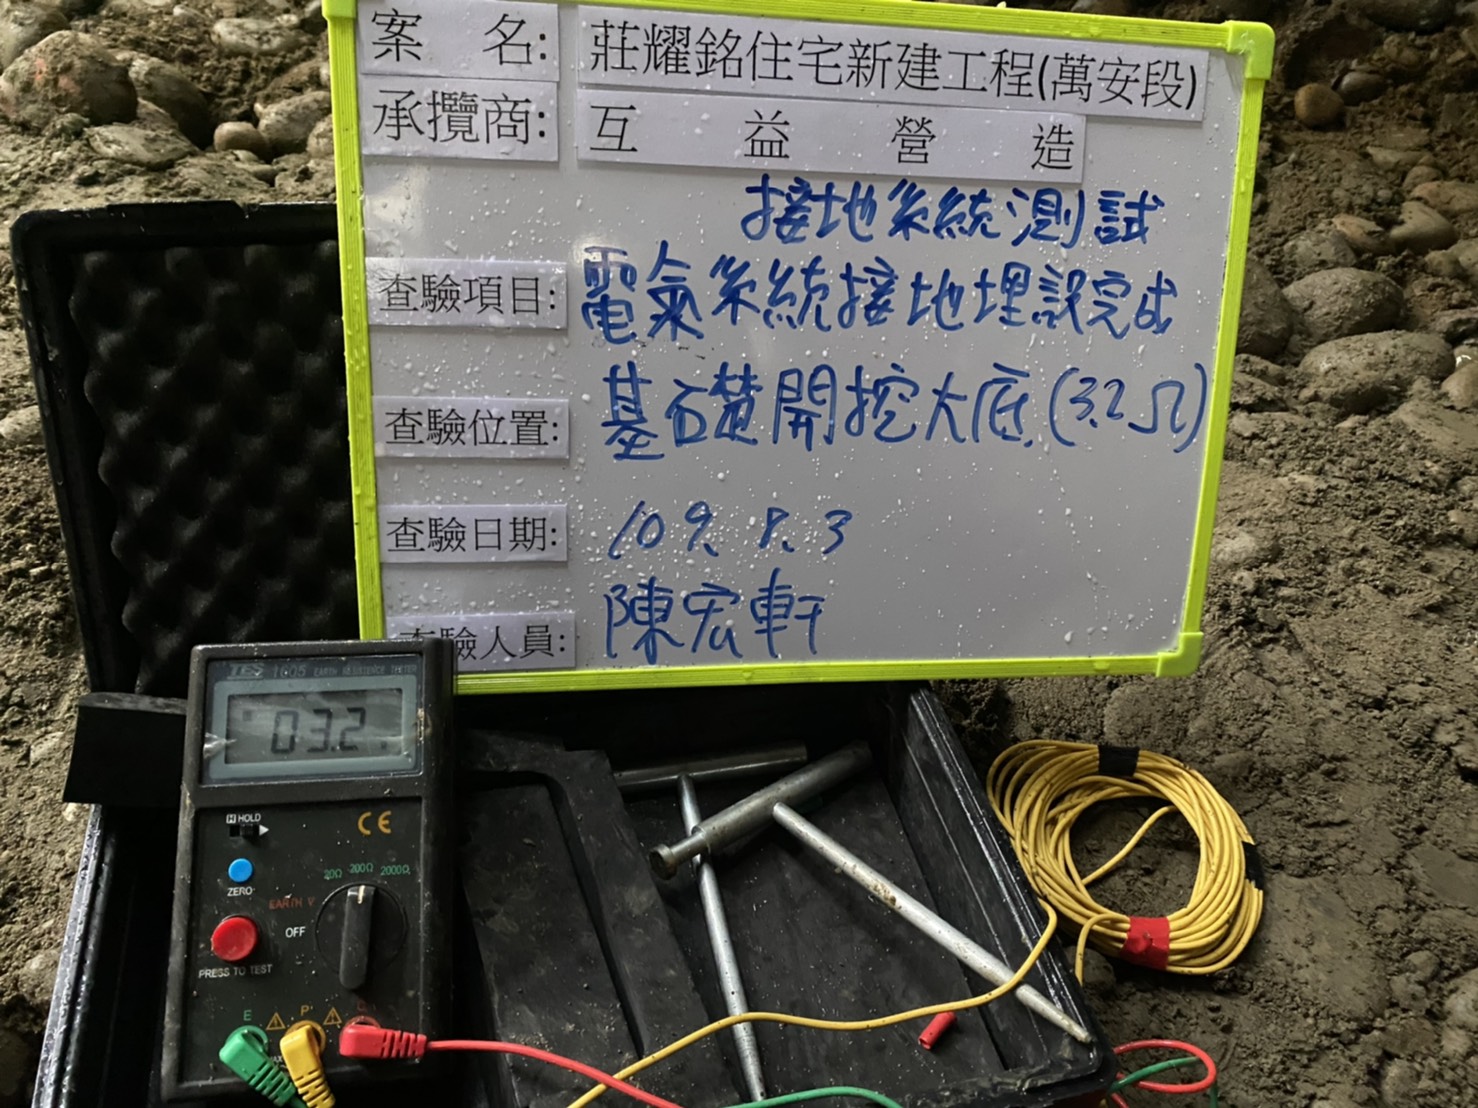 案 名: 莊耀銘住宅新建工程(萬安段)
承攬商: 互益營造
接地系統測試
查驗項目: 電氣系統接地埋設完成
查驗位置: 基礎開挖大底.(3.2Ω)
查驗日期: 109. 8. 3
查驗人員: 陳宏軒
TES 1605 EARTH RESISTANCE TESTER
03.2
H HOLD
CE
ZERO
20Ω 200Ω 2000Ω
EARTH V
OFF
PRESS TO TEST
E P C